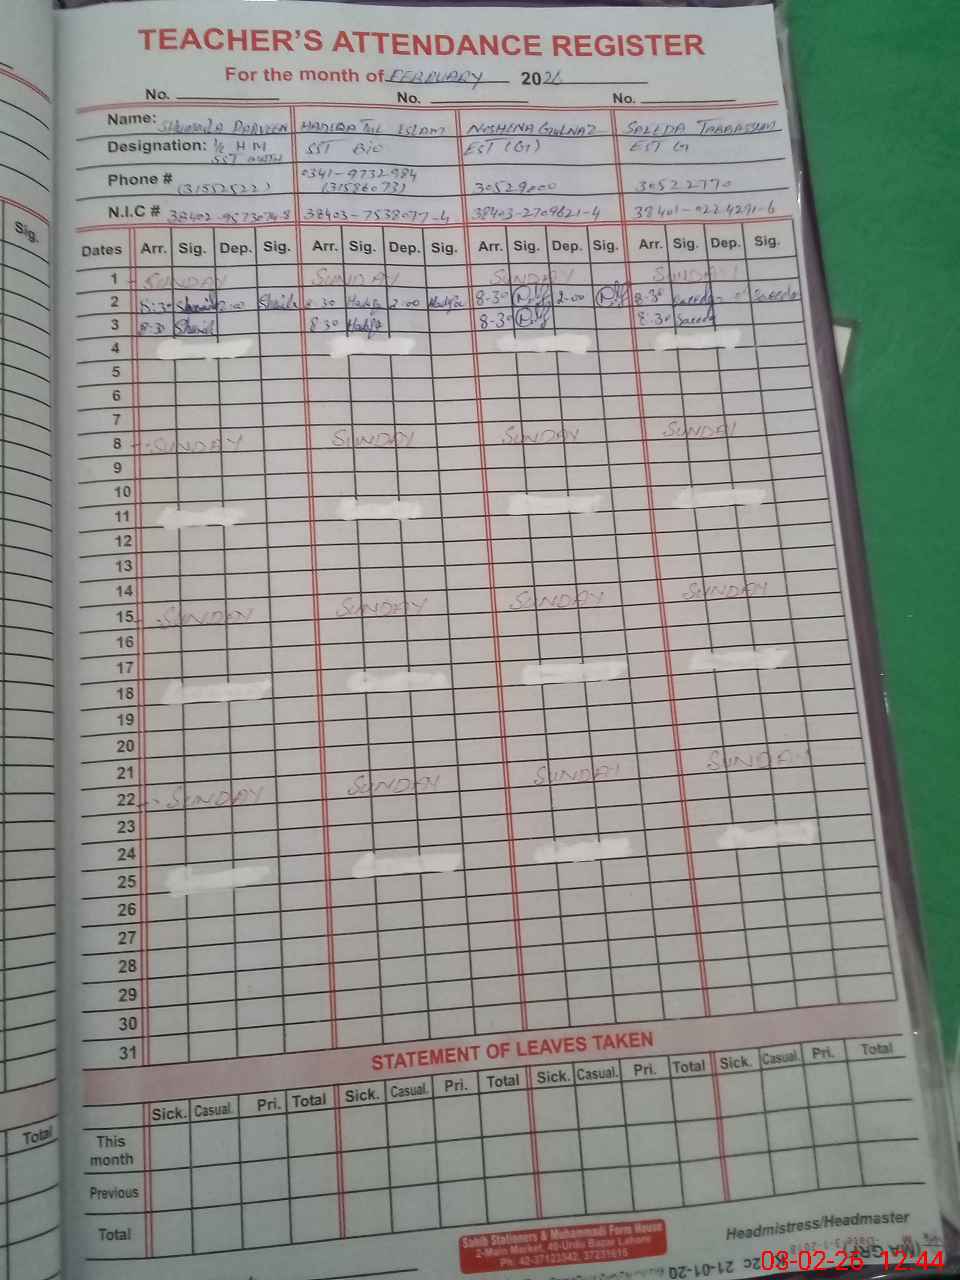 TEACHER'S ATTENDANCE REGISTER
For the month of FEBRUARY 2026
No. No. No.
Name: SHUMAILA PARVEEN HADIQA TUL ISLAM NOSHINA GULNAZ SAEEDA TABASSUM
Designation: I/C H M SST BIO EST (G) EST G
SST MATH
Phone # 0341-9732984
(31552522) (31586073) 30529000 30522770
N.I.C # 38402-9573074-8 38403-7538077-4 38403-2709621-4 38401-0224291-6
Sig. Dates Arr. Sig. Dep. Sig. Arr. Sig. Dep. Sig. Arr. Sig. Dep. Sig. Arr. Sig. Dep. Sig.
1 SUNDAY SUNDAY SUNDAY SUNDAY
2 8:30 2:00 8:30 Hadiqa 2:00 Hadiqa 8-30 2-00 8-30 Saeeda Saeeda
3 8:30 8:30 Hadiqa 8-30 8:30 Saeeda
4
5
6
7
8 SUNDAY SUNDAY SUNDAY SUNDAY
9
10
11
12
13
14
15 SUNDAY SUNDAY SUNDAY SUNDAY
16
17
18
19
20
21
22 SUNDAY SUNDAY SUNDAY SUNDAY
23
24
25
26
27
28
29
30
31
STATEMENT OF LEAVES TAKEN
Total Sick. Casual. Pri. Total Sick. Casual. Pri. Total Sick. Casual. Pri. Total Sick. Casual. Pri. Total
This month
Previous
Total
Sahib Stationers & Muhammadi Form House
2-Main Market, 40-Urdu Bazar Lahore
Ph: 42-37123542, 37231615
Headmistress/Headmaster
03-02-26 12:44